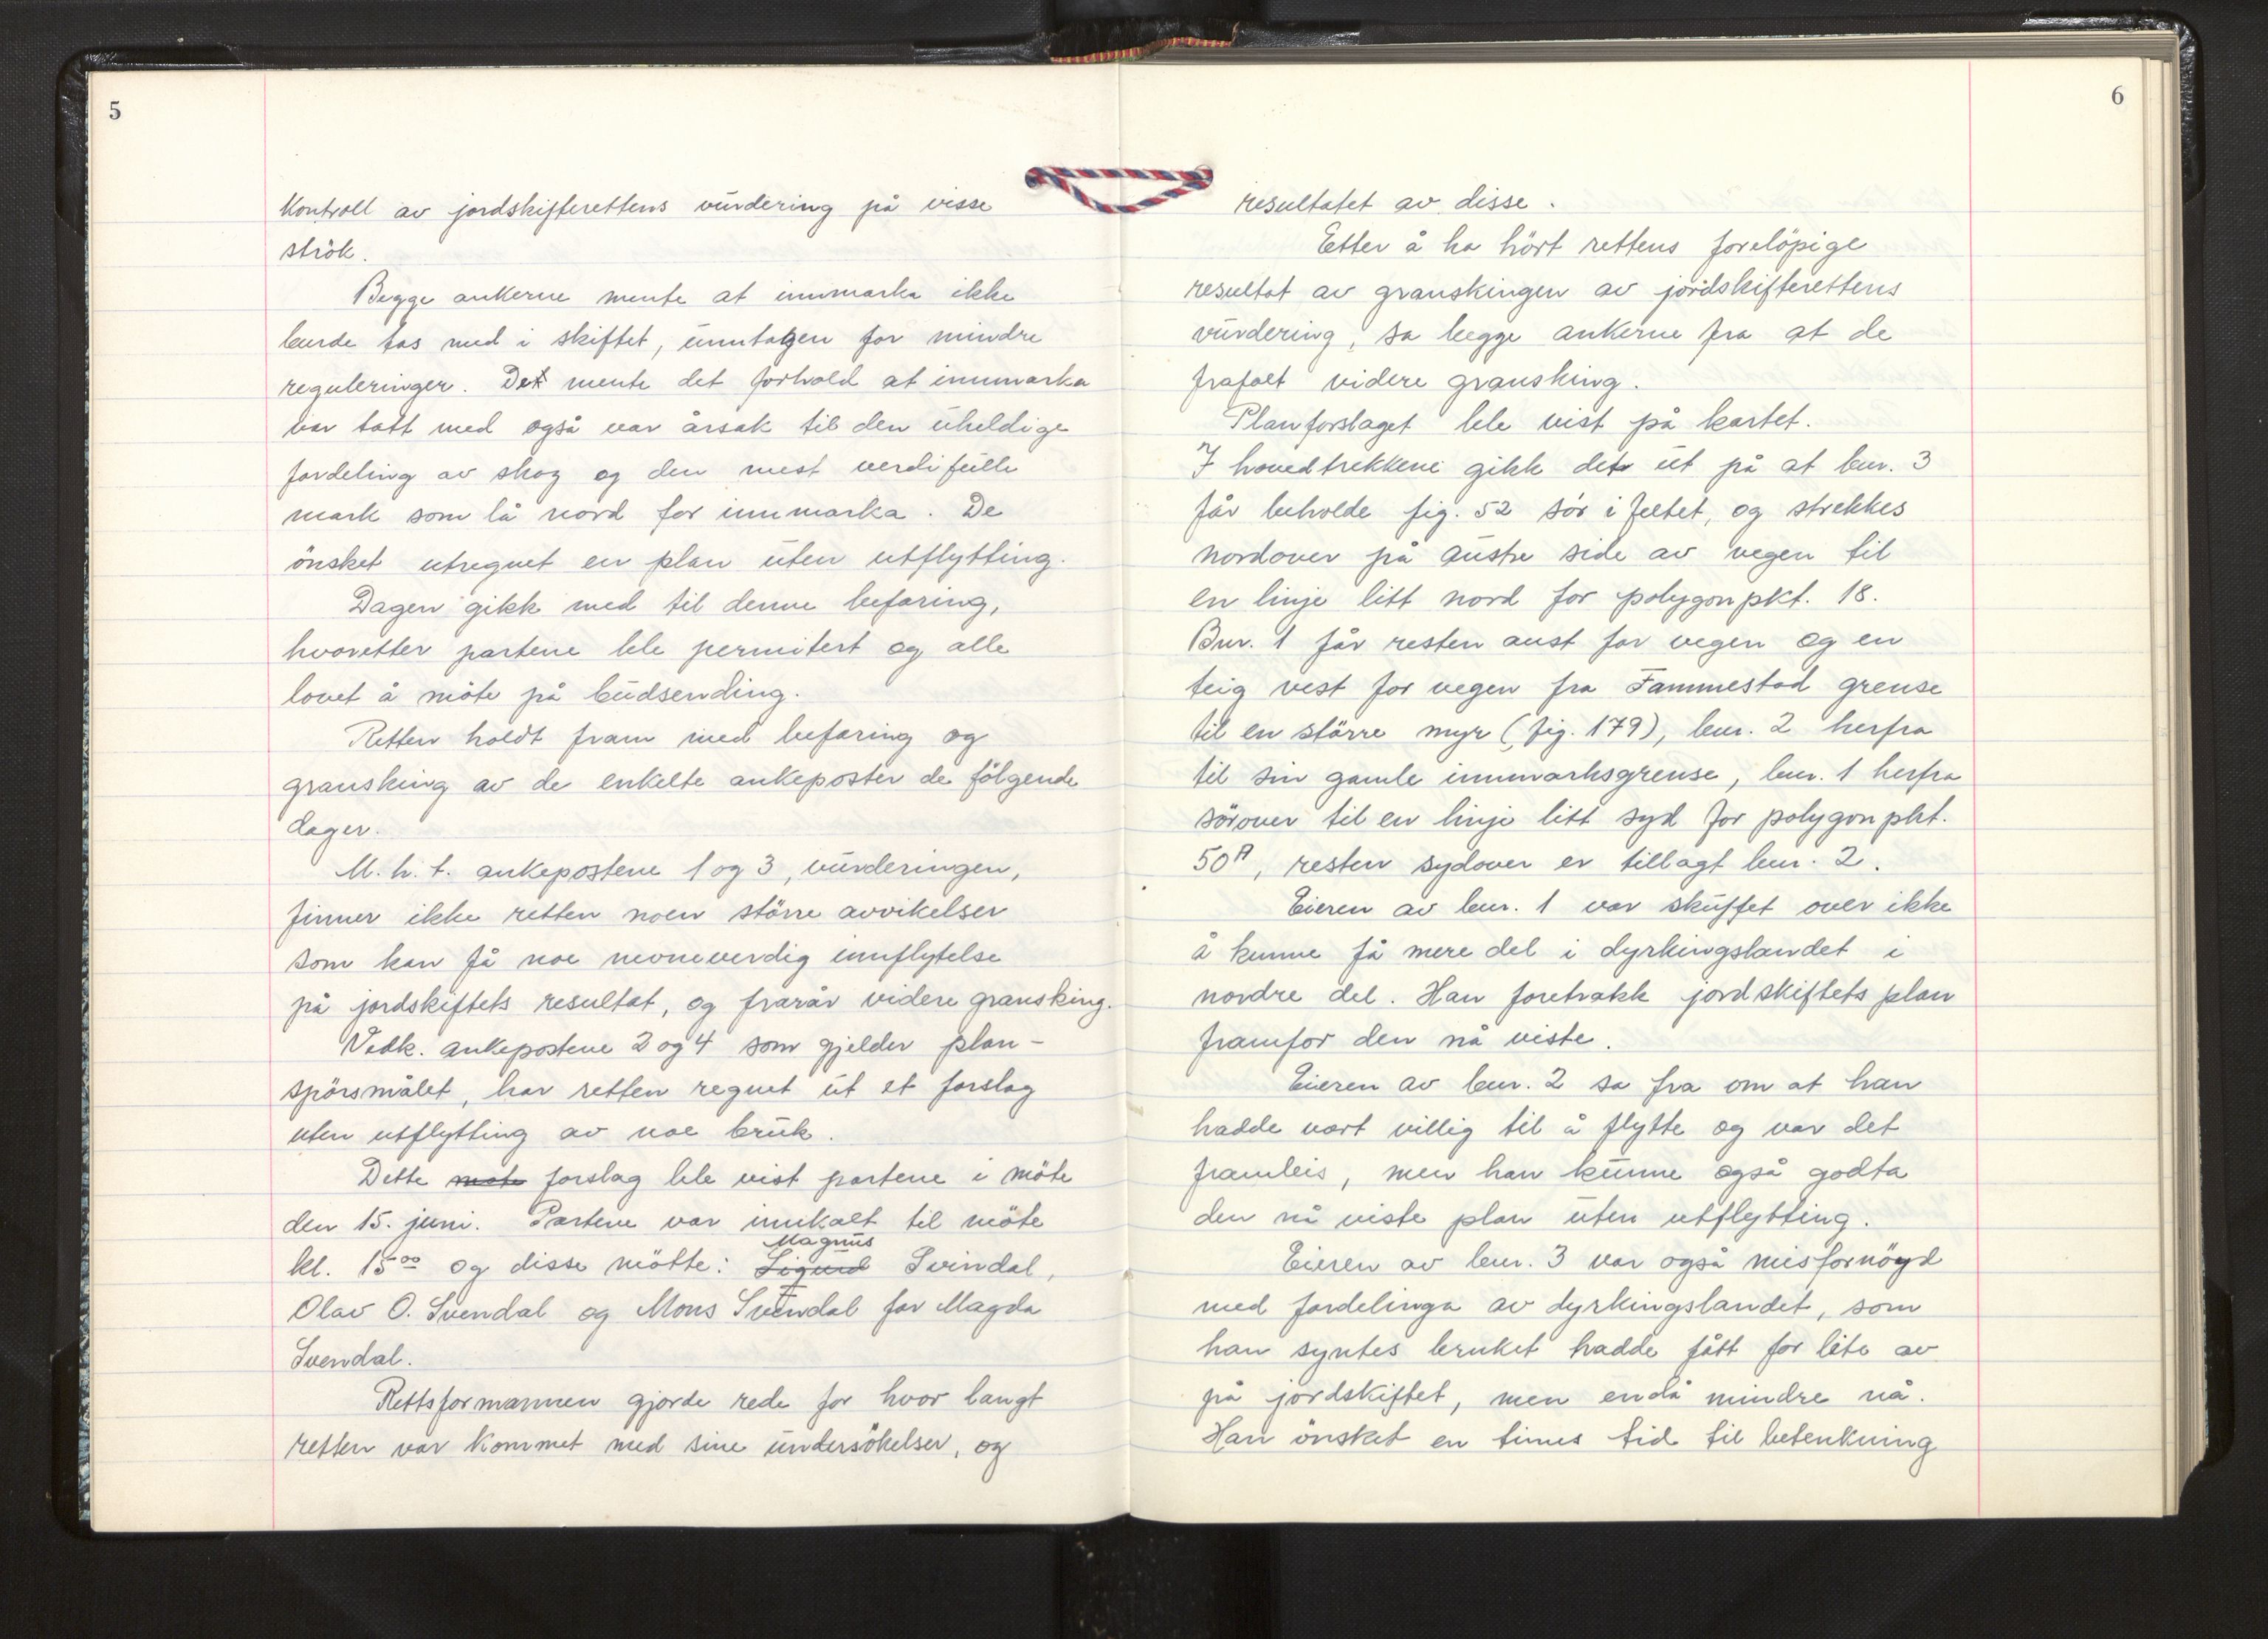 5
Kontroll av jordskifterettens vurdering på visse
strök.
Begge ankerne mente at innmarka ikke
burde tas med i skiftet, unntagen for mindre
reguleringer. Det mente det forhold at innmarka
var tatt med også var årsak til den uheldige
fordeling av skog og den mest verdifulle
mark som lå nord for innmarka. De
önsket utregnet en plan uten utflytting.
Dagen gikk med til denne befaring,
hvoretter partene ble permitert og alle
lovet å möte på budsending.
Retten holdt fram med befaring og
gransking av de enkelte ankeposter de fölgende
dager.
M.h.t. ankepostene 1 og 3, vurderingen,
finner ikke retten noen större avvikelser
som kan få noe nevneverdig innflytelse
på jordskiftets resultat, og frarår videre gransking.
Vedk. ankepostene 2 og 4 som gjelder plan-
spörsmålet, har retten regnet ut et forslag
uten utflytting av noe bruk.
Dette möte forslag ble vist partene i möte
den 15. juni. Partene var innkalt til möte
Magnus
kl. 15⁰⁰ og disse mötte: Sigurd Svindal,
Olav O. Svendal og Mons Svendal for Magda
Svendal.
Rettsformannen gjorde rede for hvor langt
retten var kommet med sine undersökelser, og
6
resultatet av disse.
Etter å ha hört rettens forelöpige
resultat av granskingen av jordskifterettens
vurdering, sa begge ankerne fra at de
frafalt videre gransking.
Planforslaget ble vist på kartet.
I hovedtrekkene gikk det ut på at bnr. 3
får beholde fig. 52 sör i feltet, og strekkes
nordover på austre side av vegen til
en linje litt nord for polygonpkt. 18.
Bnr. 1 får resten aust for vegen og en
teig vest for vegen fra Fammestad grense
til en större myr (fig. 179), bnr. 2 herfra
til sin gamle innmarksgrense, bnr. 1 herfra
sörover til en linje litt syd for polygonpkt.
50A, resten sydover er tillagt bnr. 2.
Eieren av bnr. 1 var skuffet over ikke
å kunne få mere del i dyrkingslandet i
nordre del. Han foretrakk jordskiftets plan
framfor den nå viste.
Eieren av bnr. 2 sa fra om at han
hadde vært villig til å flytte og var det
framleis, men han kunne også godta
den nå viste plan uten utflytting.
Eieren av bnr. 3 var også misfornöyd
med fordelinga av dyrkingslandet, som
han syntes bruket hadde fått for lite av
på jordskiftet, men endå mindre nå.
Han önsket en times tid til betenkning